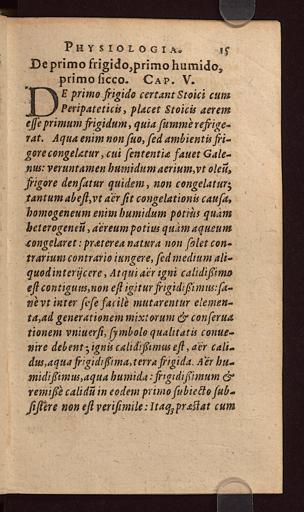 PHYSIOLOGIA. 15
De primo frigido, primo humido,
primo sicco. CAP. V.
DE primo frigido certant Stoici cum
Peripateticis, placet Stoicis aerem
esse primum frigidum, quia summè refrige-
rat. Aqua enim non suo, sed ambientis fri-
gore congelatur, cui sententiæ fauet Gale-
nus: veruntamen humidum aerium, vt oleũ,
frigore densatur quidem, non congelatur;
tantum abest, vt aër sit congelationis causa,
homogeneum enim humidum potiùs quàm
heterogeneũ, aëreum potius quàm aqueum
congelaret: præterea natura non solet con-
trarium contrario iungere, sed medium ali-
quod interijcere, Atqui aër igni calidißimo
est contiguus, non est igitur frigidißimus: sa-
nè vt inter sese facilè mutarentur elemen-
ta, ad generationem mixtorum & conserua
tionem vniuersi, symbolo qualitatis conue-
nire debent; ignis calidißimus est, aër cali-
dus, aqua frigidißima, terra frigida. Aër hu-
midißimus, aqua humida: frigidißimum &
remissè calidũ in eodem primo subiecto sub-
sistere non est verisimile: Itaq; præstat cum